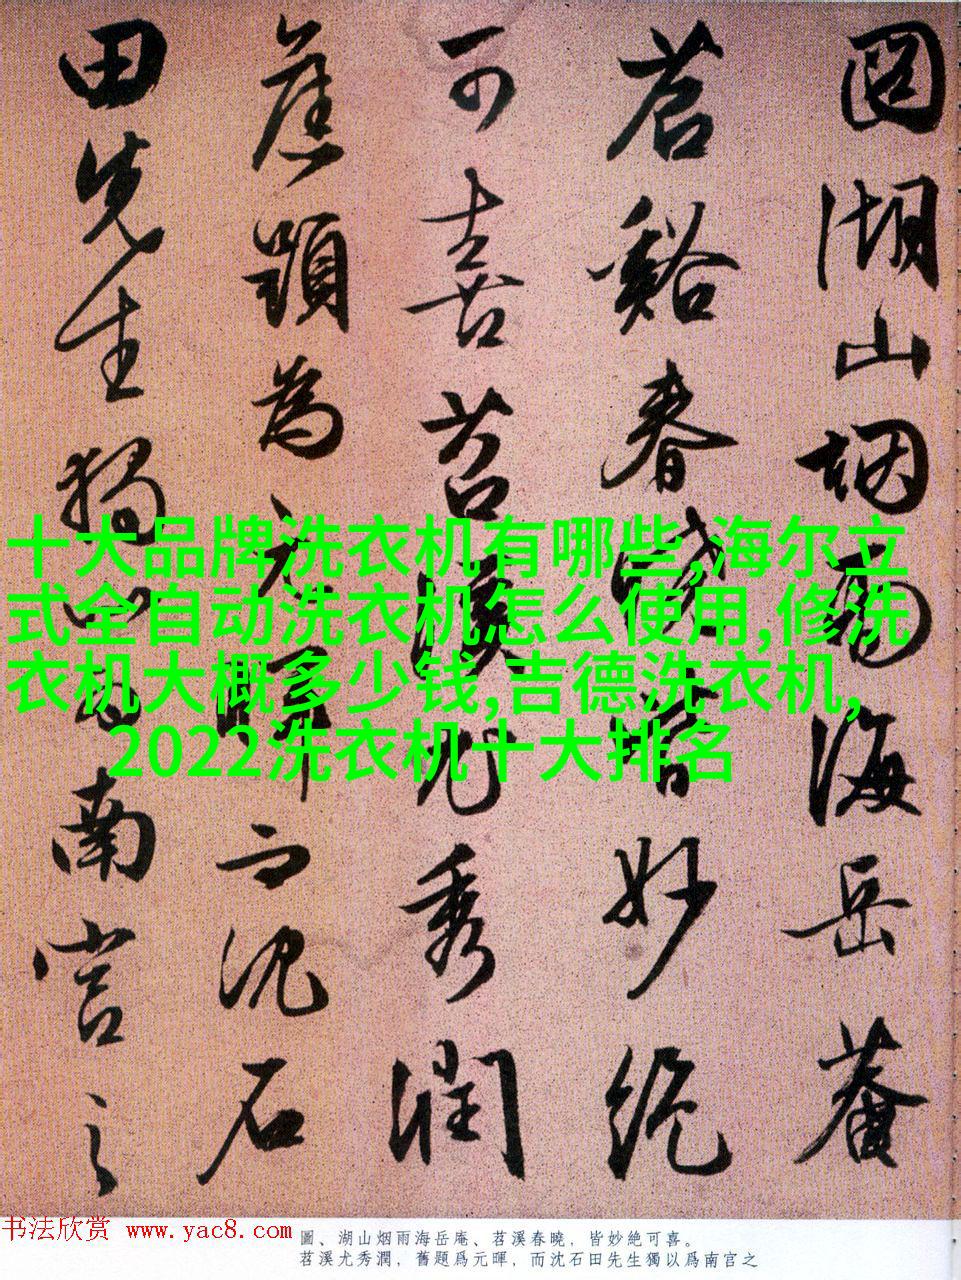 圖湖山烟雨海岳菴
苕谿春曉皆妙絕
可喜苕溪尤秀潤
舊題為元暉而沈石
田先生獨以為南宫之
十大品牌洗衣机有哪些,海尔立
式全自动洗衣机怎么使用,修洗
衣机大概多少钱,吉德洗衣机,
2022洗衣机十大排名
书法欣赏 www.yac8.com
圖、湖山烟雨海岳庵、苕溪春曉，皆妙絕可喜。
苕溪尤秀潤，舊題爲元暉，而沈石田先生獨以爲南宫之